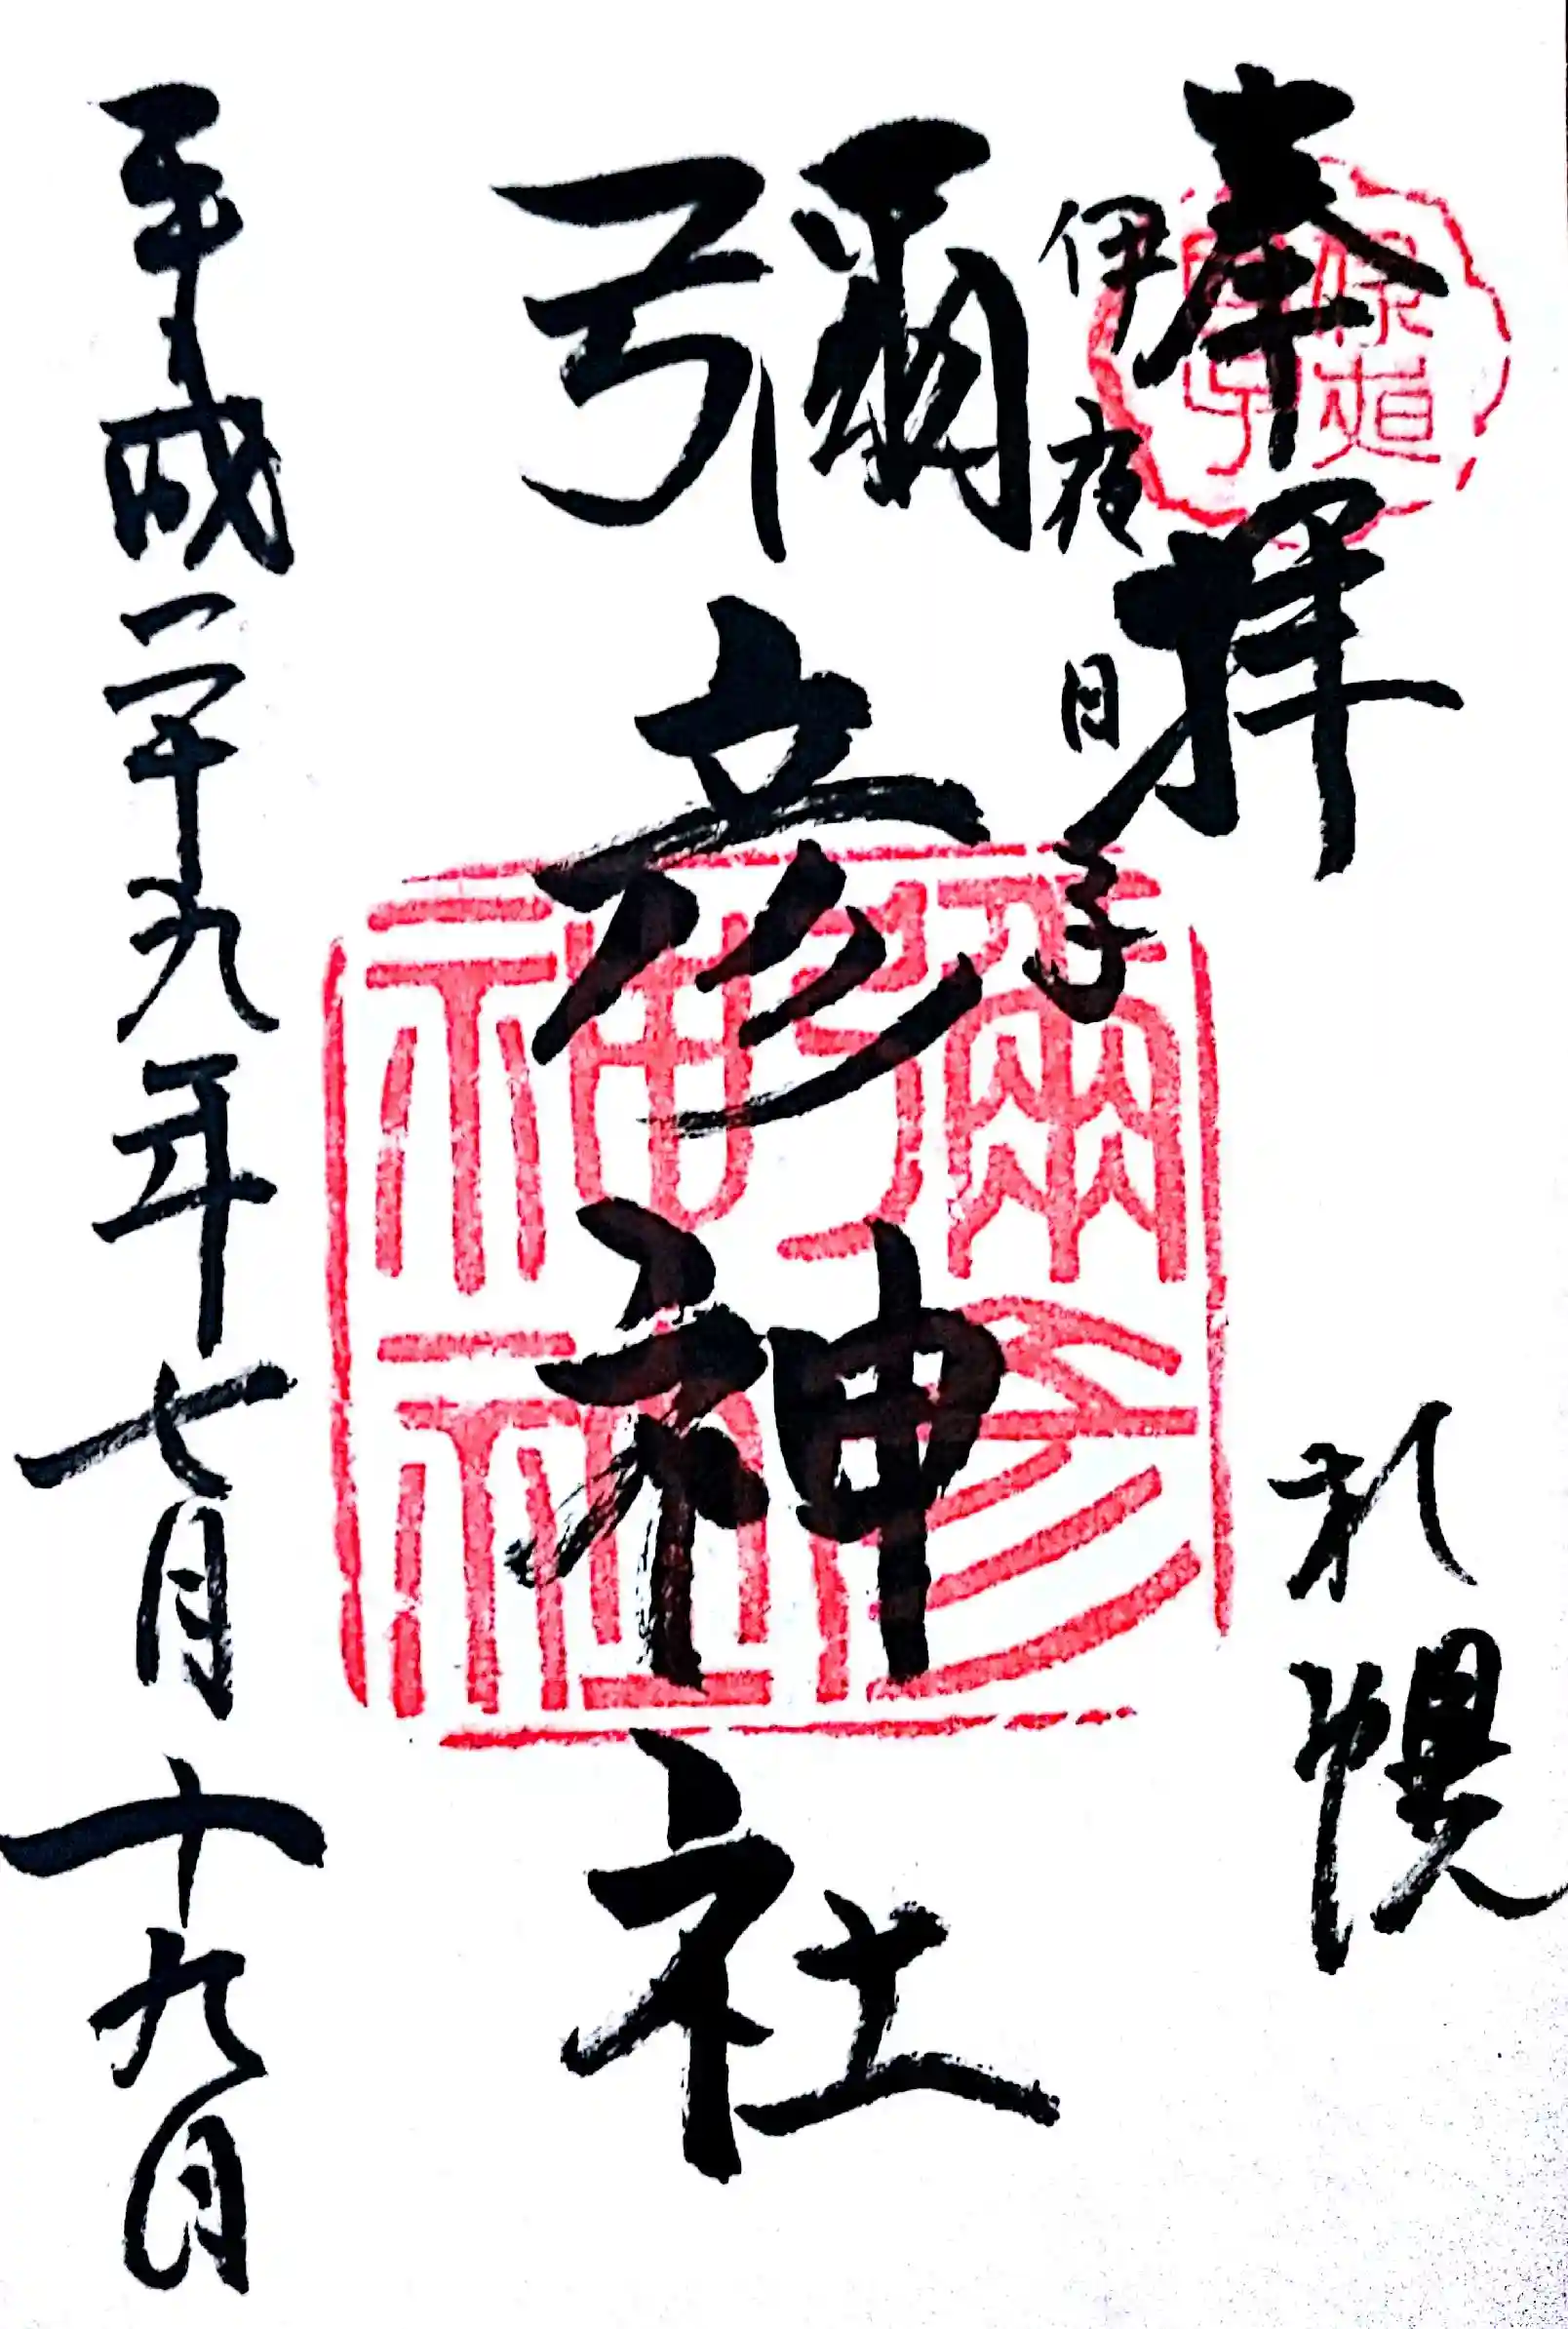 奉拝
札幌
伊夜日子
彌彦神社
平成二十九年七月十九日
彌彦神社